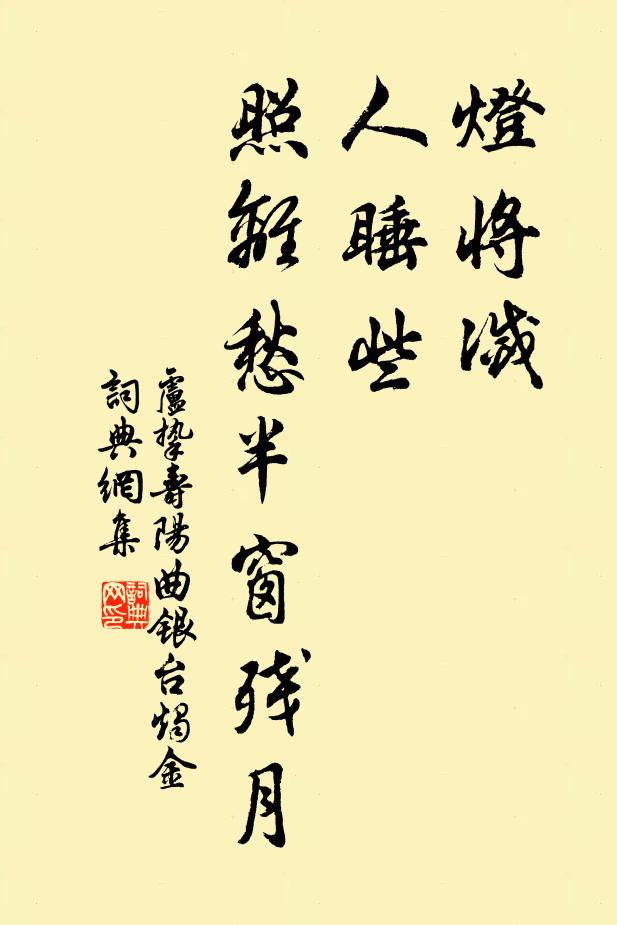 燈將滅
人睡些
照離愁半窗残月
盧摯壽陽曲銀台燭金
詞典網集
詞典
网印